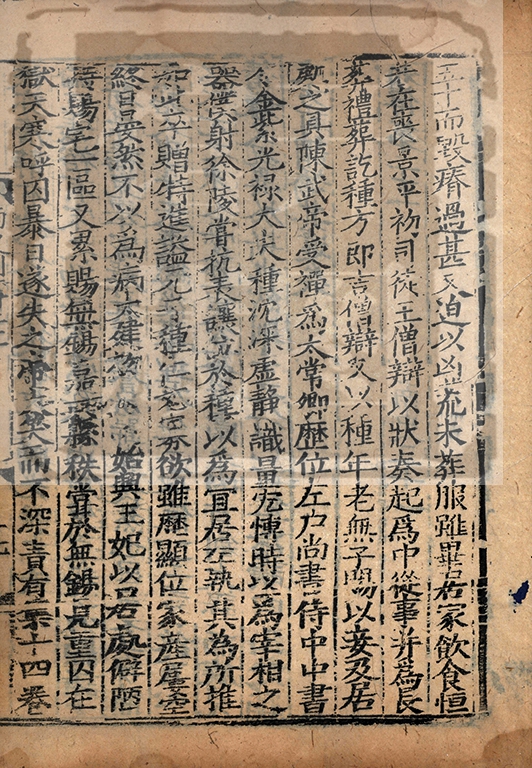 五十而毀瘠過甚又迫以凶荒未葬服雖畢居家飲食恒
若在喪景平初司徒王僧辯以狀奏起爲中從事并爲具
葬禮葬訖種方即吉僧辯又以種年老無子賜以妾及居
處之具陳武帝受禪爲太常卿歷位左户尚書侍中中書
令金紫光禄大夫種沉深虚静識量宏博時以爲宰相之
器僕射徐陵嘗抗表讓位於種以爲宜居左執其為所推
如此卒贈特進謚元子種仁恕寡欲雖歷顯位家産屢空
終日晏然不以爲病太建初始興王妃以居處僻陋
特賜宅一區又累賜無錫嘉興縣秩嘗於無錫見重囚在
獄天寒呼囚暴日遂失之帝大笑而不深責有集十四卷